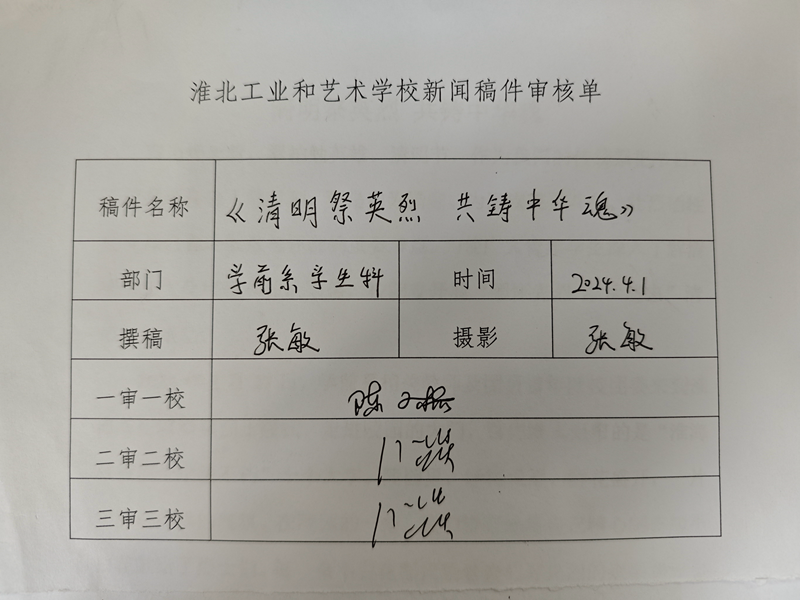 淮北工业和艺术学校新闻稿件审核单
稿件名称 《清明祭英烈 共铸中华魂》
部门 学前系学生科 时间 2024.4.1
撰稿 张敏 摄影 张敏
一审一校 陈
二审二校
三审三校